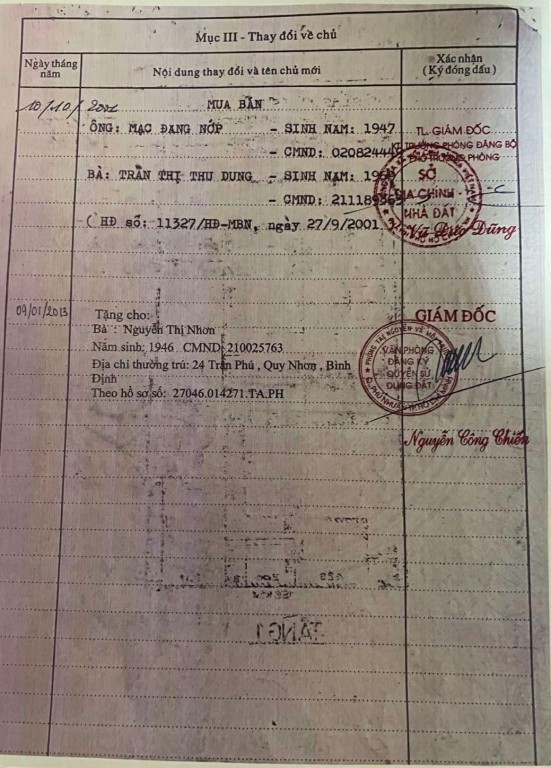 Mục III - Thay đổi về chủ
Ngày tháng năm
Nội dung thay đổi và tên chủ mới
Xác nhận
(Ký đóng dấu)
10/10/2001
MUA BÁN
ÔNG: MẠC ĐANG NỚP - SINH NAM: 1947
- CMND: 02082444
BÀ: TRẦN THỊ THU DUNG - SINH NAM:
- CMND: 211189
( HĐ số: 11327/HĐ-MBN, ngày 27/9/2001
TL. GIÁM ĐỐC
TRƯỞNG PHÒNG ĐĂNG BỘ
PHÓ TRƯỞNG PHÒNG
SỞ
ĐỊA CHÍNH -
NHÀ ĐẤT
Dũng
09/01/2013
Tặng cho:
Bà : Nguyễn Thị Nhơn
Năm sinh: 1946 CMND: 210025763
Địa chỉ thường trú: 24 Trần Phú , Quy Nhơn , Bình
Định
Theo hồ sơ số: 27046.014271.TA.PH
GIÁM ĐỐC
VĂN PHÒNG
ĐĂNG KÝ
QUYỀN SỬ
DỤNG ĐẤT
Nguyễn Công Chiến
TẦNG 1